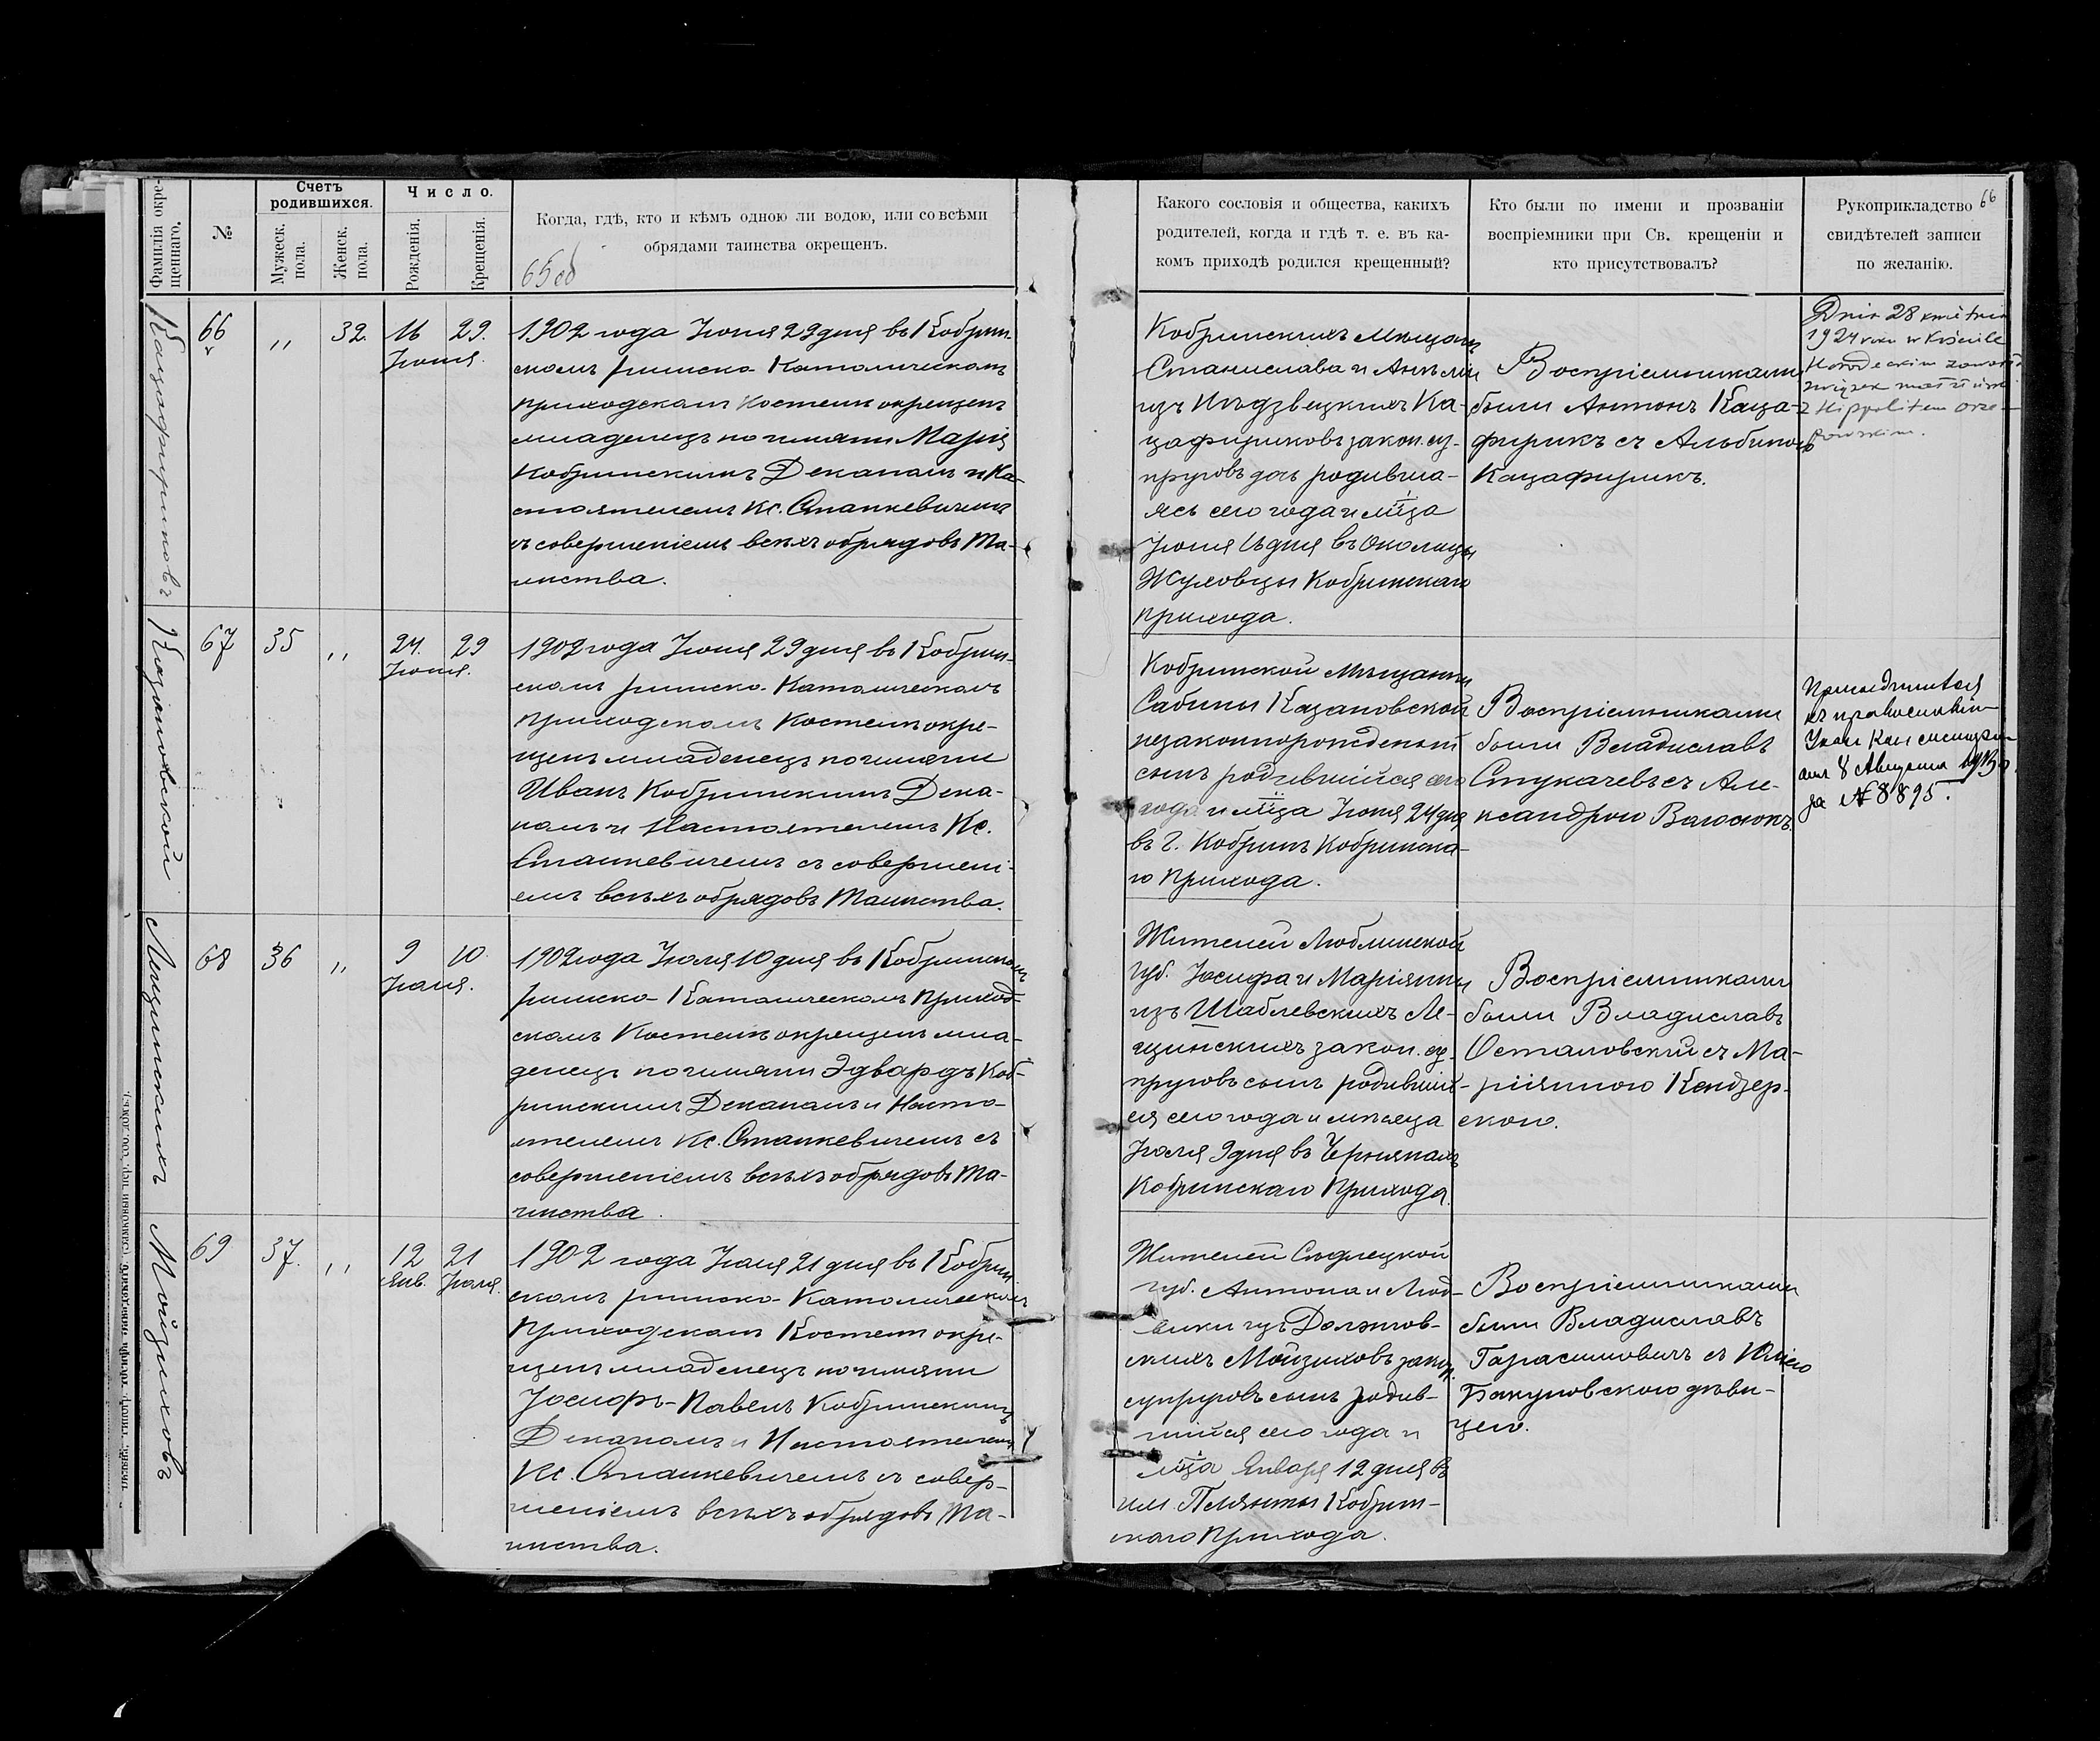 Фамилія окре-
щеннаго.
№
Счетъ
родившихся.
Мужеск.
пола.
Женск.
пола.
Число.
Рожденія.
Крещенія.
Когда, гдѣ, кто и кѣмъ одною ли водою, или со всѣми
обрядами таинства окрещенъ.
65об
Кацафириковъ
66
"
32.
16
29.
Іюня.
1902 года Іюня 29 дня въ Кобрин-
скомъ римско-Католическомъ
приходскомъ Костелѣ окрещенъ
младенецъ по имени Марія
Кобринскимъ Деканомъ и На-
стоятелемъ Кс. Станкевичемъ
съ совершеніемъ всѣхъ обрядовъ Та-
инства.
Казановской
67
35
"
24.
29
Іюня.
1902 года Іюня 29 дня въ Кобрин-
скомъ римско-Католическомъ
приходскомъ Костелѣ окре-
щенъ младенецъ по имени
Иванъ Кобринскимъ Дека-
номъ и Настоятелемъ Кс.
Станкевичемъ съ совершені-
емъ всѣхъ обрядовъ Таинства.
Лещинскихъ
68
36
"
9
10.
Іюля.
1902 года Іюля 10 дня въ Кобринскомъ
римско-Католическомъ приход-
скомъ Костелѣ окрещенъ мла-
денецъ по имени Эдвардъ Коб-
ринскимъ Деканомъ и Насто-
ятелемъ Кс. Станкевичемъ съ
совершеніемъ всѣхъ обрядовъ Та-
инства.
Мойзиховъ
69
37.
"
12
21
Янв. Іюля.
1902 года Іюля 21 дня въ Кобрин-
скомъ римско-Католическомъ
приходскомъ Костелѣ окре-
щенъ младенецъ по имени
Іосифъ-Павелъ Кобринскимъ
Деканомъ и Настоятелемъ
Кс. Станкевичемъ съ совер-
шеніемъ всѣхъ обрядовъ Та-
инства.
Какого сословія и общества, какихъ
родителей, когда и гдѣ т. е. въ ка-
комъ приходѣ родился крещенный?
Кто были по имени и прозваніи
воспріемники при Св. крещеніи и
кто присутствовалъ?
Рукоприкладство
свидѣтелей записи
по желанію.
66
Кобринскихъ Мѣщанъ
Станислава и Анѣли
изъ Ка-
цафириковъ закон. су-
пруговъ дочь родивша-
яся сего года и мѣца
Іюня 16 дня въ Околицы
Жуховцы Кобринскаго
прихода.
Воспріемниками
были Антонъ Каца-
фирикъ съ Альбиною
Кацафирикъ.
Dnia 28 kwietnia
1924 roku w Kościele
Horodeckim zawarł
związek małżeński
z Hippolitem
Кобринской Мѣщанки
Сабины Казановской
незаконнорожденный
сынъ родившійся сего
года и мѣца Іюня 24 дня
въ г. Кобринѣ Кобринска-
го Прихода.
Воспріемниками
были Владиславъ
Стукачевъ съ Але-
ксандрою
къ православію
8 Августа
за № 8895.
Жителей Люблинской
губ. Іосифа и Маріянны
изъ Шаблевскихъ Ле-
щинскихъ закон. су-
пруговъ сынъ родивший-
ся сего года и мѣсяца
Іюля 9 дня въ
Кобринскаго Прихода.
Воспріемниками
были Владиславъ
Остановский съ Ма-
ріянною Кендзер-
скою.
Жителей Сѣдлецкой
губ. Антона и Люд-
вики изъ Должков-
скихъ Мойзиховъ закон.
супруговъ сынъ родив-
шийся сего года и
мѣца Января 12 дня въ
им. Кобрин-
скаго Прихода.
Воспріемниками
были Владиславъ
Гарасимовичъ съ Юліею
Бакуновскою дѣви-
цею.